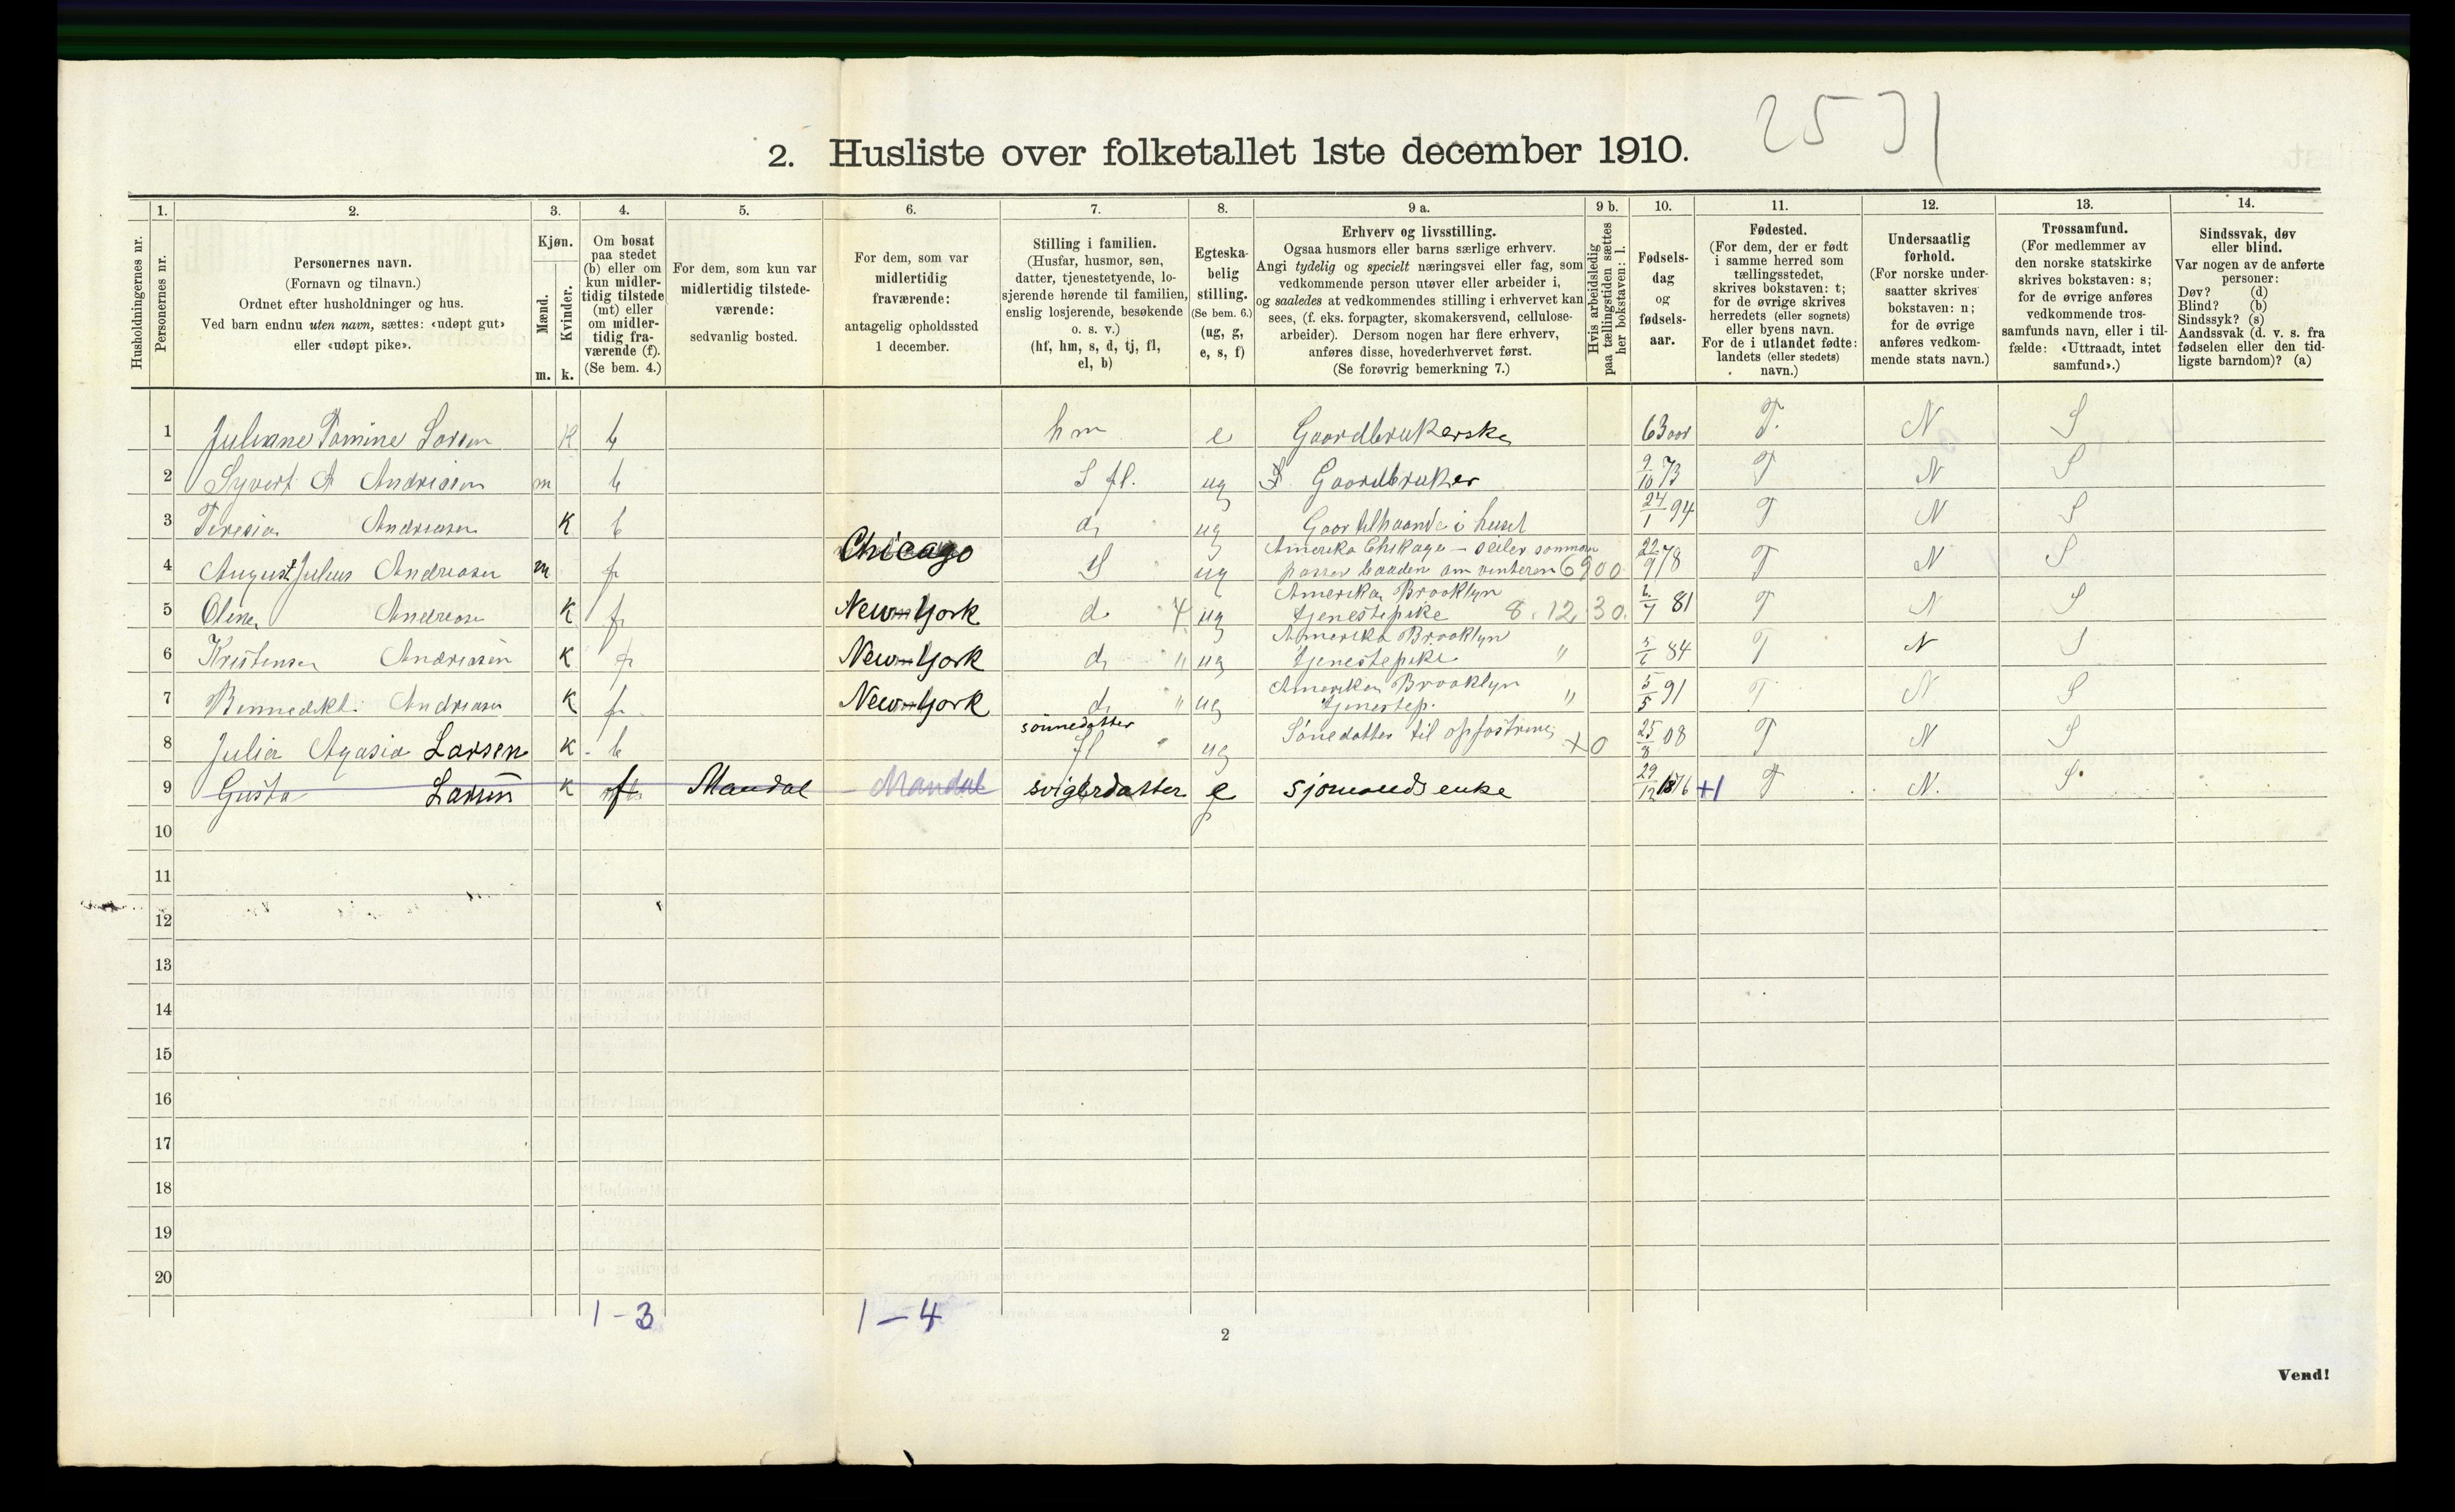 2531
2. Husliste over folketallet 1ste december 1910.
Husholdningernes nr.
1.
Personernes nr.
2.
Personernes navn.
(Fornavn og tilnavn.)
Ordnet efter husholdninger og hus.
Ved barn endnu uten navn, sættes: «udøpt gut»
eller «udøpt pike».
3.
Kjøn.
Mænd.
Kvinder.
m. k.
4.
Om bosat
paa stedet
(b) eller om
kun midler-
tidig tilstede
(mt) eller
om midler-
tidig fra-
værende (f).
(Se bem. 4.)
5.
For dem, som kun var
midlertidig tilstede-
værende:
sedvanlig bosted.
6.
For dem, som var
midlertidig
fraværende:
antagelig opholdssted
1 december.
7.
Stilling i familien.
(Husfar, husmor, søn,
datter, tjenestetyende, lo-
sjerende hørende til familien,
enslig losjerende, besøkende
o. s. v.)
(hf, hm, s, d, tj, fl,
el, b)
8.
Egteska-
belig
stilling.
(Se bem. 6.)
(ug, g,
e, s, f)
9 a.
Erhverv og livsstilling.
Ogsaa husmors eller barns særlige erhverv.
Angi tydelig og specielt næringsvei eller fag, som
vedkommende person utøver eller arbeider i,
og saaledes at vedkommendes stilling i erhvervet kan
sees, (f. eks. forpagter, skomakersvend, cellulose-
arbeider). Dersom nogen har flere erhverv,
anføres disse, hovederhvervet først.
(Se forøvrig bemerkning 7.)
9 b.
Hvis arbeidsledig
paa tællingstiden sættes
her bokstaven: l.
10.
Fødsels-
dag
og
fødsels-
aar.
11.
Fødested.
(For dem, der er født
i samme herred som
tællingsstedet,
skrives bokstaven: t;
for de øvrige skrives
herredets (eller sognets)
eller byens navn.
For de i utlandet fødte:
landets (eller stedets)
navn.)
12.
Undersaatlig
forhold.
(For norske under-
saatter skrives
bokstaven: n;
for de øvrige
anføres vedkom-
mende stats navn.)
13.
Trossamfund.
(For medlemmer av
den norske statskirke
skrives bokstaven: s;
for de øvrige anføres
vedkommende tros-
samfunds navn, eller i til-
fælde: «Uttraadt, intet
samfund».)
14.
Sindssvak, døv
eller blind.
Var nogen av de anførte
personer:
Døv? (d)
Blind? (b)
Sindssyk? (s)
Aandssvak (d. v. s. fra
fødselen eller den tid-
ligste barndom)? (a)
1 Juliane Tomine Larsen K b hm e Gaardbrukerske 63 aar T. N S
2 Syvert A Andriasen m b S fl. ug Gaardbruker 9/10 73 T N S
3 Teresia Andreasen K b d ug 24/1 94 T N S
4 August Julius Andreasen m f Chicago S ug Amerika Chikago - seiler sommer 22/9 78 T N S
om vinteren 6900
5 Oline Andreasen K f New York d ug Amerika Brooklyn 6/7 81 T N S
tjenestepike 8.12.30.
6 Andriasen K f New York d " ug Amerika Brooklyn 84 T N S
tjenestepike "
7 Bennedikt. Andreasen K f New York d " ug Amerika Brooklyn 5/5 91 T N S
tjenestep. "
8 Julia Agasia Larsen K b sønnedatter fl ug Sønedatter til opfostring +0 25/8 08 T N S
9 Gusta Larsen K f Mandal Mandal svigerdatter e sjomandsenke 29/12 1876 +1 T N. S.
10
11
12
13
14
15
16
17
18
19
20
1-3 1-4
2
Vend!